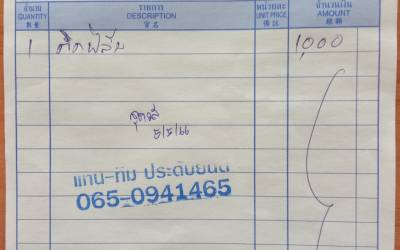 จำนวน รายการ หน่วยละ จำนวนเงิน
QUANTITY DESCRIPTION UNIT PRICE AMOUNT
數量 貨名 備註 總額
1 ติดฟิล์ม 1,000
5/5/66
แทน-ทิม ประดับยนต์
065-0941465